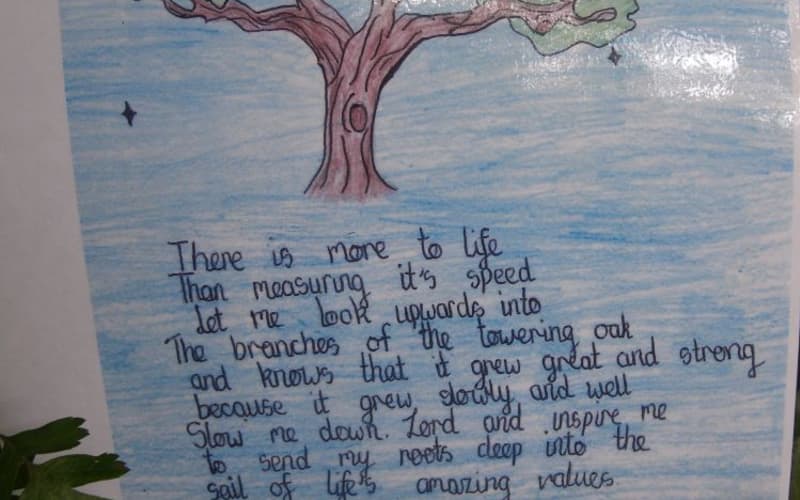 There is more to life
Than measuring it's speed
Let me look upwards into
The branches of the towering oak
and knows that it grew great and strong
because it grew slowly and well
Slow me down. Lord and inspire me
to send my roots deep into the
sail of life's amazing values